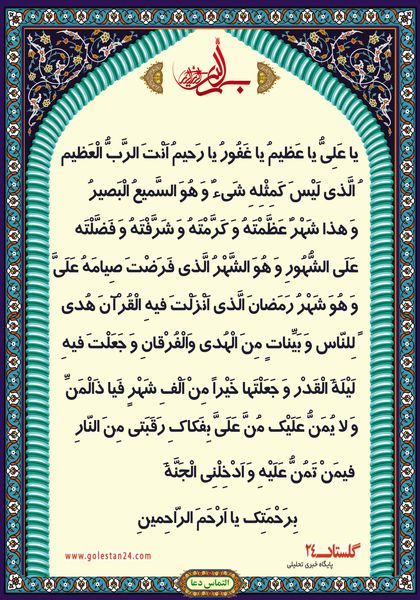 بسم الله الرحمن الرحیم
یا عَلِیُّ یا عَظیمُ یا غَفُورُ یا رَحیمُ اَنْتَ الرَّبُّ الْعَظیم
ُ الَّذی لَیْسَ کَمِثْلِهِ شَیءٌ وَ هُوَ السَّمیعُ الْبَصیرُ
وَ هذا شَهْرٌ عَظَّمْتَهُ وَ کَرَّمْتَهُ وَ شَرَّفْتَهُ وَ فَضَّلْتَهُ
عَلَی الشُّهُورِ وَ هُوَ الشَّهْرُ الَّذی فَرَضْتَ صِیامَهُ عَلَیَّ
وَ هُوَ شَهْرُ رَمَضانَ الَّذی اَنْزَلْتَ فیهِ الْقُرْآنَ هُدیً
لِلنّاسِ وَ بَیِّناتٍ مِنَ الْهُدی وَالْفُرْقانِ وَ جَعَلْتَ فیهِ
لَیْلَةَ الْقَدْرِ وَ جَعَلْتَها خَیْراً مِنْ اَلْفِ شَهْرٍ فَیا ذَالْمَنِّ
وَ لا یُمَنُّ عَلَیْکَ مُنَّ عَلَیَّ بِفَکاکِ رَقَبَتی مِنَ النّارِ
فیمَنْ تَمُنُّ عَلَیْهِ وَ اَدْخِلْنِی الْجَنَّةَ
بِرَحْمَتِکَ یا اَرْحَمَ الرّاحِمینَ
گلستان ۲۴
پایگاه خبری تحلیلی
www.golestan24.com
التماس دعا